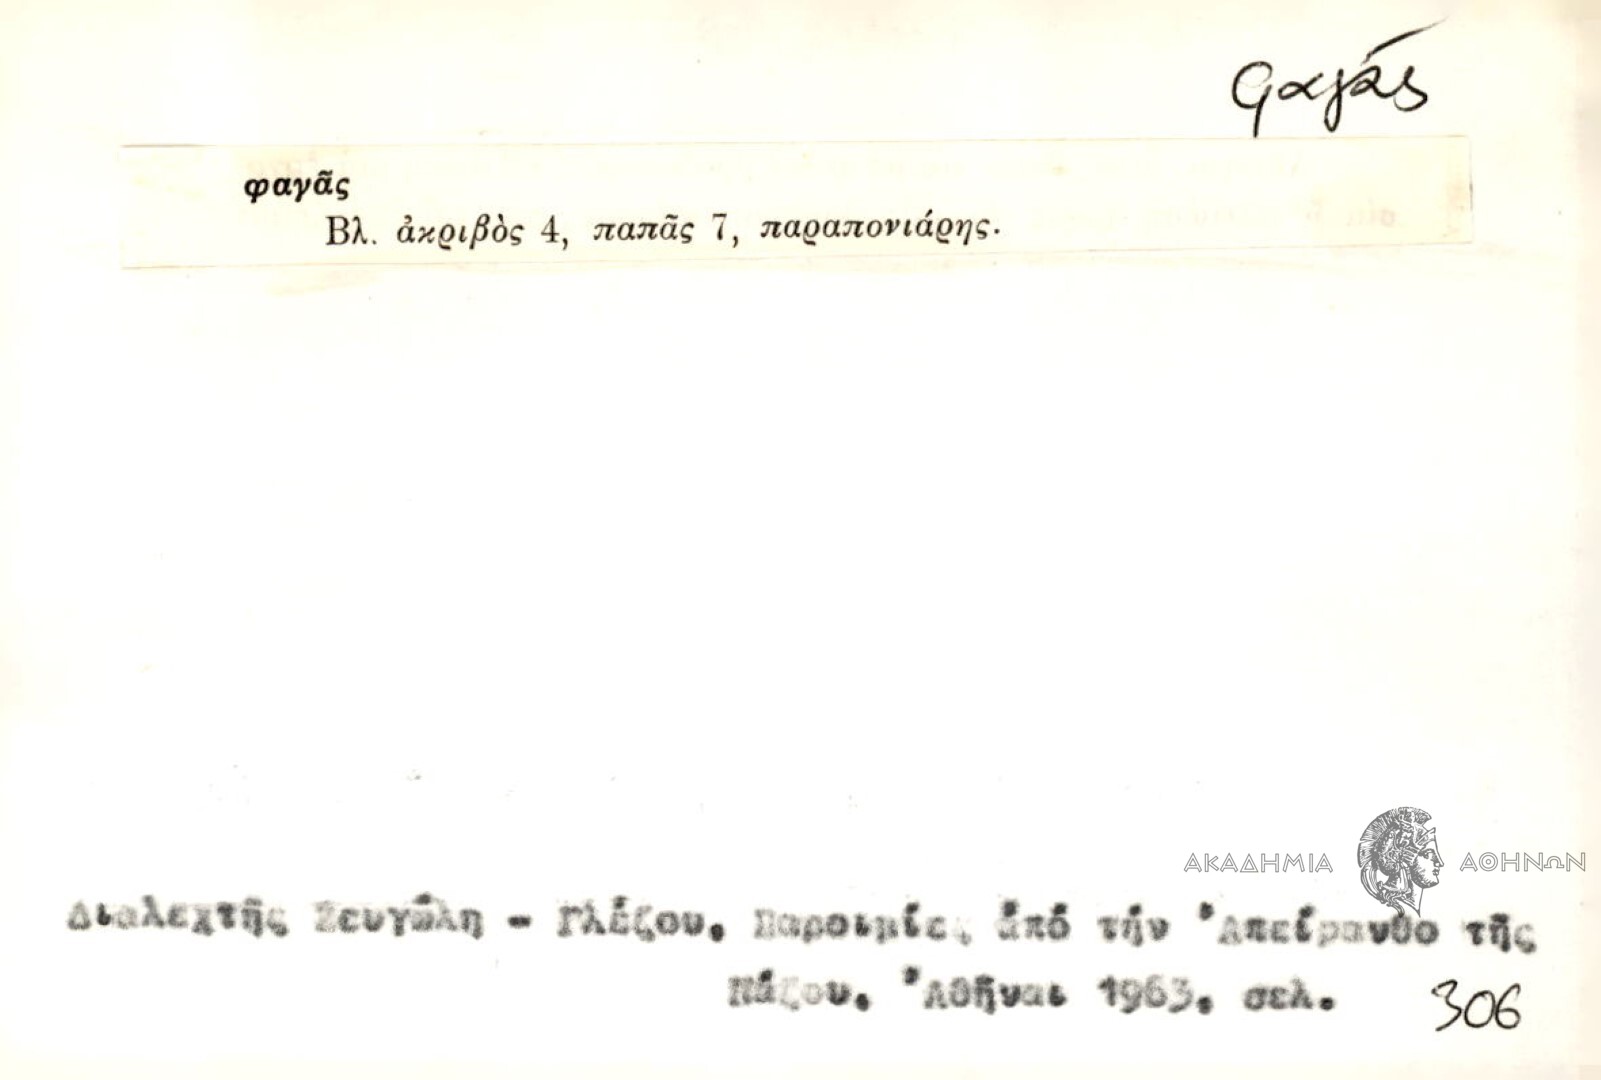 φαγάς
φαγᾶς
Βλ. ἀκριβὸς 4, παπᾶς 7, παραπονιάρης.
ΑΚΑΔΗΜΙΑ ΑΘΗΝΩΝ
Διαλεχτῆς Ζευγώλη - Γλέζου. Παροιμίες ἀπό τήν Ἀπείρανθο τῆς
Νάξου. Ἀθῆναι 1963. σελ. 306